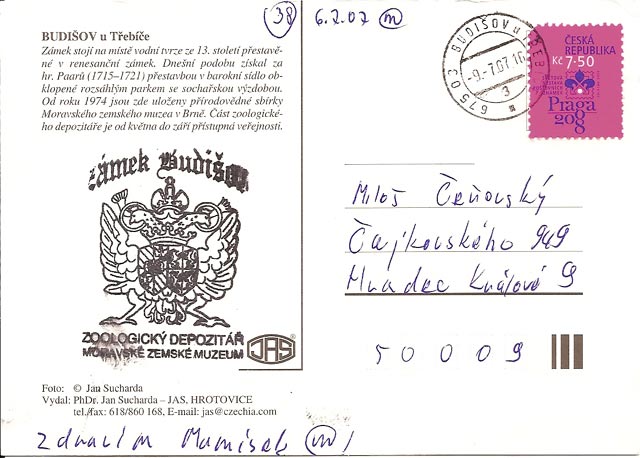 38 6.7.07 m
BUDIŠOV u Třebíče
Zámek stojí na místě vodní tvrze ze 13. století přestavě-
né v renesanční zámek. Dnešní podobu získal za
hr. Paarů (1715–1721) přestavbou v barokní sídlo ob-
klopené rozsáhlým parkem se sochařskou výzdobou.
Od roku 1974 jsou zde uloženy přírodovědné sbírky
Moravského zemského muzea v Brně. Část zoologické-
ho depozitáře je od května do září přístupná veřejnosti.
zámek Budišov
ZOOLOGICKÝ DEPOZITÁŘ
MORAVSKÉ ZEMSKÉ MUZEUM
JAS
Foto: © Jan Sucharda
Vydal: PhDr. Jan Sucharda – JAS, HROTOVICE
tel./fax: 618/860 168, E-mail: jas@czechia.com
Zdravím
675 03 BUDIŠOV u TŘEB
-9.-7.07.16
3
ČESKÁ
REPUBLIKA
Kč 7·50
Praga
2008
Miloš
Čajkovského 949
Hradec Králové 9
50009